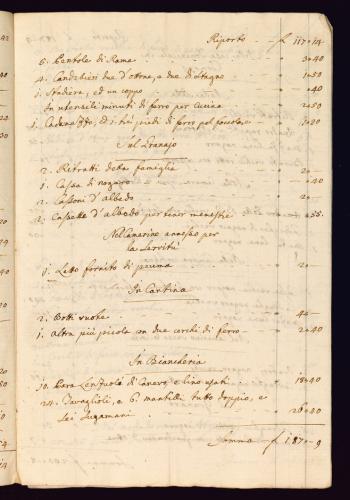 Riporto - - f 117-14
6. Pentole di Rame - - - 3-40
4. Candelieri due d'ottone, e due di stagno - - 1-50
1. Stadiera, ed un coppo - - - -40
In utensili minuti di ferro per cucina - - 2-50
1. e di tre piedi di ferro pel focolare - 1-20
Sul Granajo
2. Ritratti della famiglia - - - 2-
1. Cassa di nogara - - - -40
2. Cassoni d'Albedo - - - 2-
2. Cassette d'albedo per tener menestre - -55
Nel Camerino annesso per
la Servitù
1. Letto fornito di piuma - - - 11-
In Cantina
2. Botti vuote - - - 4-
1. Altra più piccola con due cerchi di ferro - - 2-40
In Biancheria
10. Para Lenzuola di Canevo e lino usati - 18-40
24. Tavaglioli, e 6. mantilli tutto doppio, e
sei sugamani - - - 26-40
Somma - f 187-9